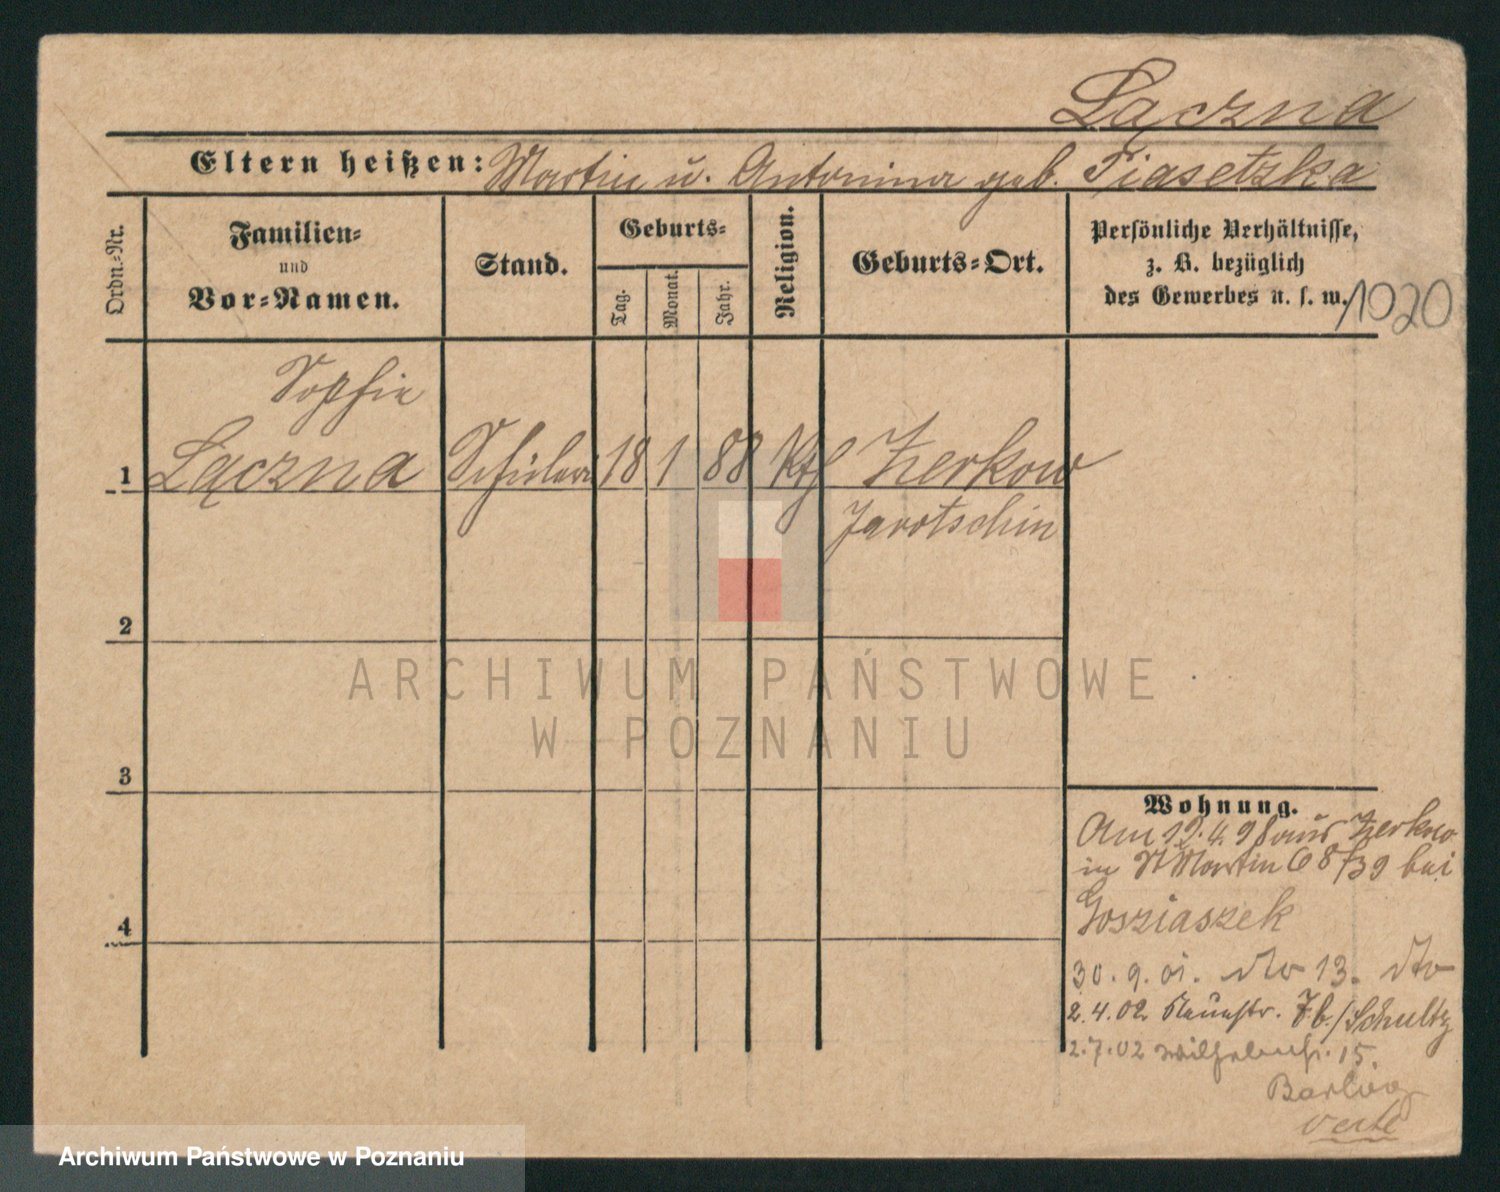 Łączna
Eltern heißen: Martin u. Antonina geb. Piasetzka
Ordn.-Nr.
Familien-
und
Vor-Namen.
Stand.
Geburts-
Tag.
Monat.
Jahr.
Religion.
Geburts-Ort.
Persönliche Verhältnisse,
z. B. bezüglich
des Gewerbes u. s. w.
1020
Sophie
1 Łączna Schülerin 18 1 88 Kth Zerkow
Jarotschin
2
3
4
Wohnung.
Am 12.4.98 aus Zerkow
in St Martin 68/39 bei
Gosziaszek
30.9.01. dto 13. dto
2.4.02 Neuestr. 7b./Schultz
2.7.02 Wilhelmstr. 15.
verte
ARCHIWUM PAŃSTWOWE
W POZNANIU
Archiwum Państwowe w Poznaniu